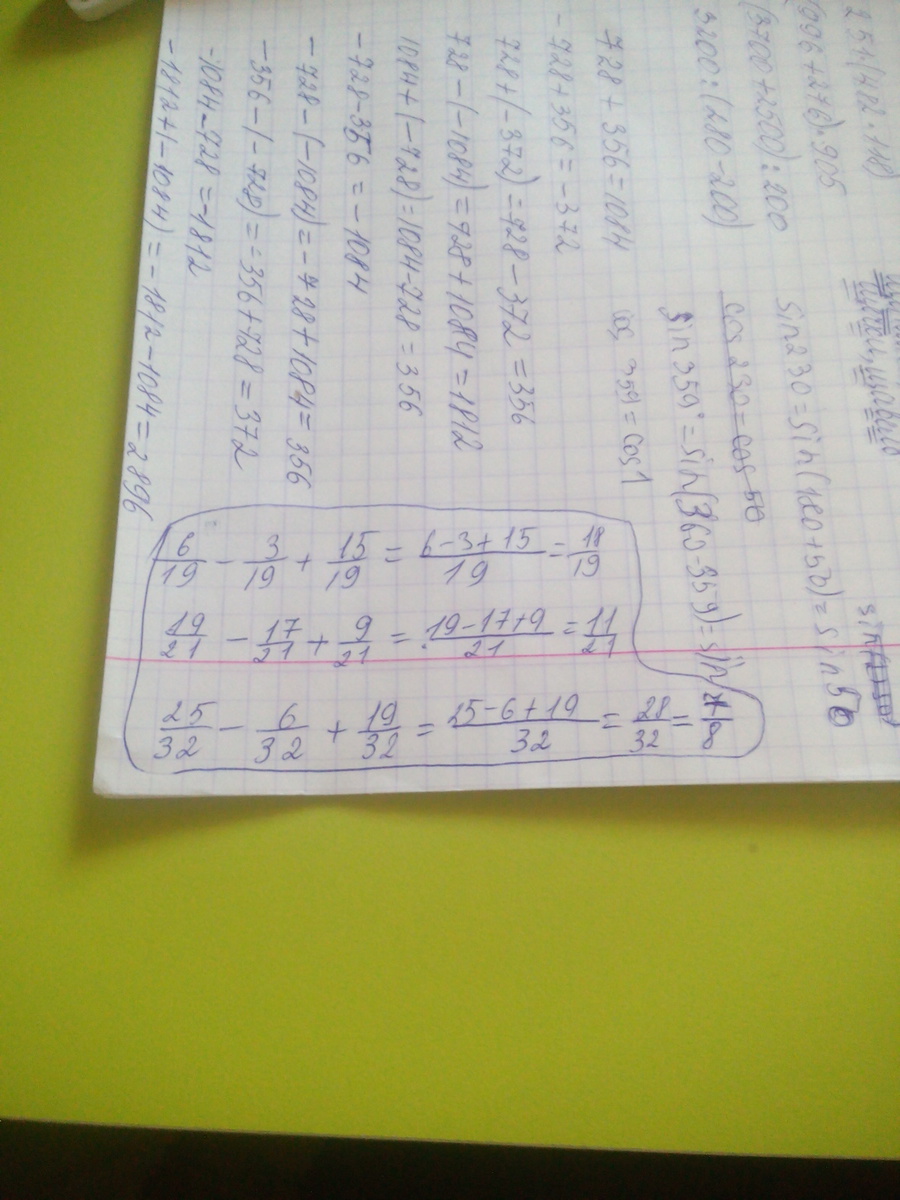 231·(412·118)
(996+276)·905
(3700+2500):200
3200:(280-200)
728+356=1084
-728+356=-372
728+(-372)=728-372=356
728-(-1084)=728+1084=1812
1084+(-728)=1084-728=356
-728-356=-1084
-728-(-1084)=-728+1084=356
-356-(-728)=-356+728=372
-1084-728=-1812
-1812+(-1084)=-1812-1084=2896
sin230=sin(180+50)=sin50
cos230=cos50
sin359°=sin(360-359)=sin1
cos359=cos1
6/19 - 3/19 + 15/19 = (6-3+15)/19 = 18/19
19/21 - 17/21 + 9/21 = (19-17+9)/21 = 11/21
25/32 - 6/32 + 19/32 = (25-6+19)/32 = 28/32 = 7/8